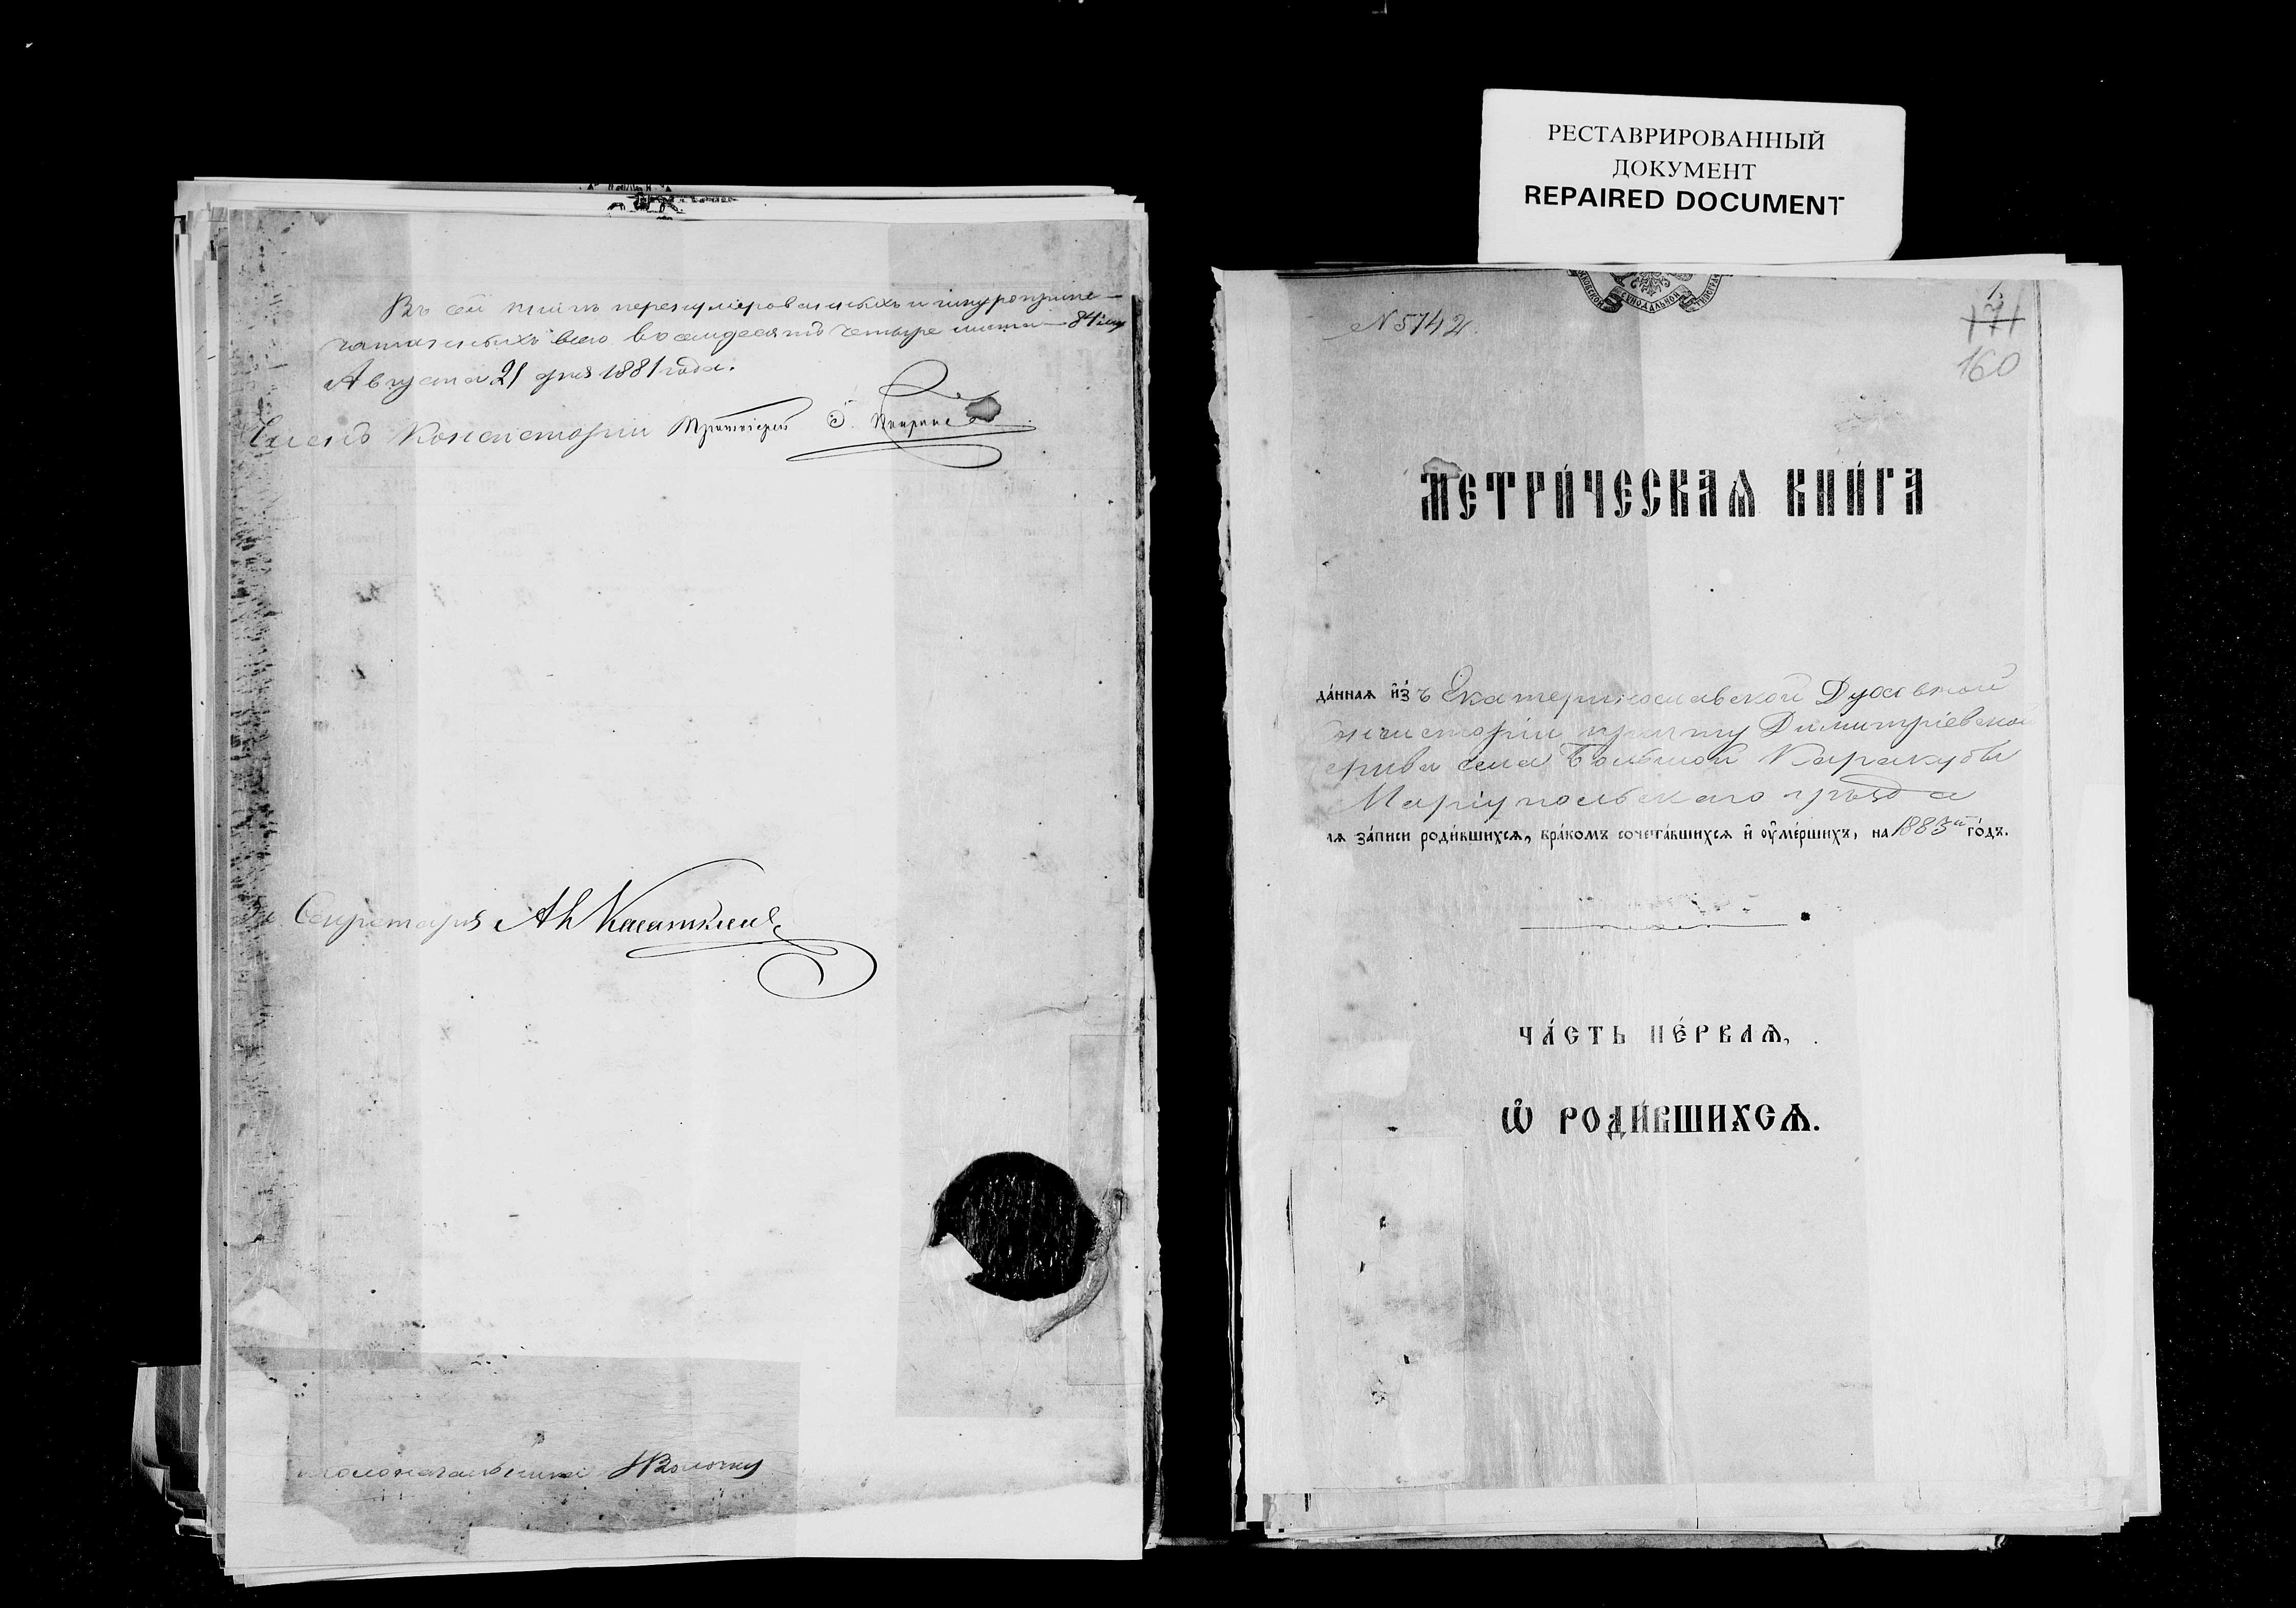 Въ сей книгѣ перенумерованныхъ и шнуроприпе-
чатанныхъ всего восемдесятъ четыре листа — 84 лис
Августа 21 дня 1881 года.
Членъ Консисторіи Протоіерей
Секретарь А Касаткинъ
столоначальникъ
РЕСТАВРИРОВАННЫЙ
ДОКУМЕНТ
REPAIRED DOCUMENT
СѴНОДАЛЬНОЙ
1.
N 5742.
171
160
МЕТРИ́ЧЕСКАѦ КНИ́ГА
да́ннаѧ и҆з̾ъ Екатеринославской Духовной
нсисторіи причту Димитріевской
еркви села Большой Каракубы
Маріупольскаго уѣзда
лѧ за́писи роди́вшихсѧ, бра́комъ сочета́вшихсѧ и҆ ᲂу҆ме́ршихъ, на 1883й го́дъ.
ЧА́СТЬ ПЕ́РВАѦ,
Ѽ РОДИ́ВШИХСѦ.